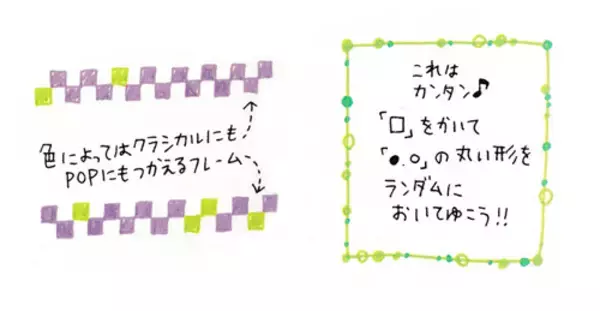 色によってはクラシカルにも
POPにもつかえるフレーム
これは
カンタン♪
「□」をかいて
「●.○」の丸い形を
ランダムに
おいてゆこう!!